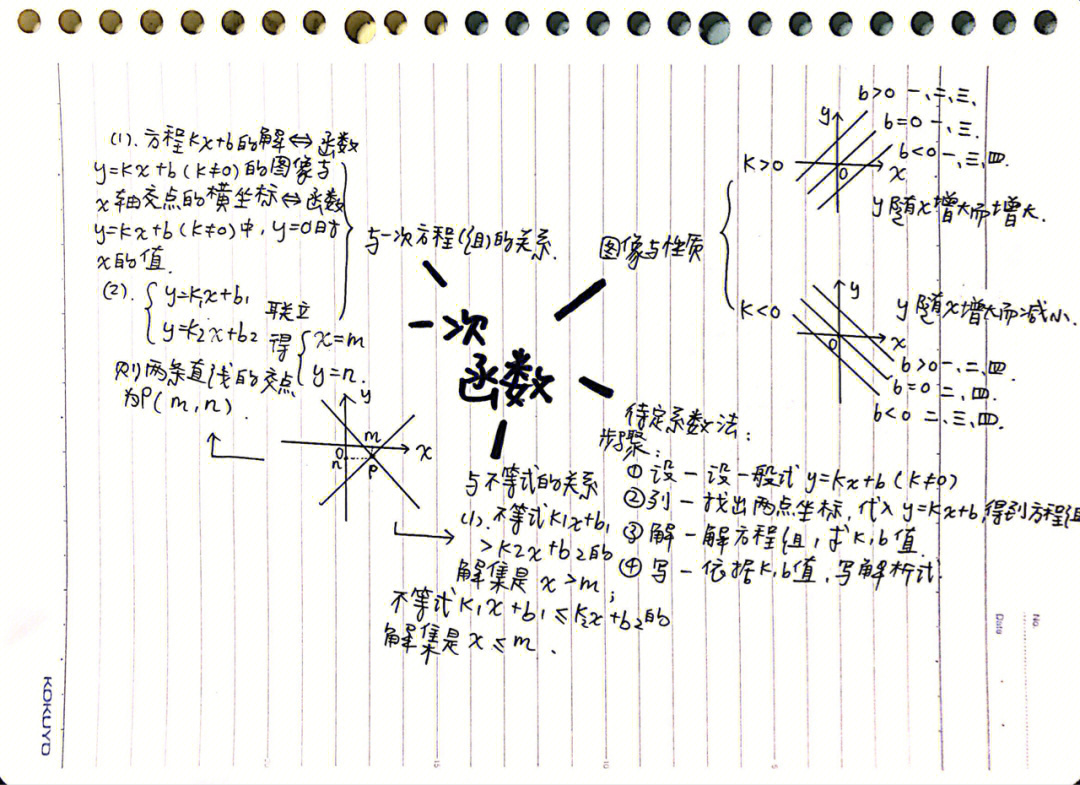 一次
函数
与一次方程(组)的关系.
(1).方程kx+b的解⇔函数
y=kx+b(k≠0)的图像与
x轴交点的横坐标⇔函数
y=kx+b(k≠0)中,y=0时
x的值.
(2).{y=k₁x+b₁
y=k₂x+b₂
联立
得{x=m
y=n.
则两条直线的交点
为P(m,n).
y
m
x
0
n
P
图像与性质
k>0
y
0
x
b>0 一、二、三、
b=0 一、三.
b<0 一、三、四.
y随x增大而增大.
k<0
y
0
x
y随x增大而减小.
b>0 一、二、四.
b=0 二、四.
b<0 二、三、四.
待定系数法:
步骤:
①设—设一般式y=kx+b(k≠0)
②列—找出两点坐标,代入y=kx+b,得到方程组
③解—解方程组,求k,b值.
④写—依据k,b值,写解析式.
与不等式的关系
(1).不等式k₁x+b₁
>k₂x+b₂的
解集是x>m;
不等式k₁x+b₁≤k₂x+b₂的
解集是x≤m.
KOKUYO
No.
Date
15
10
5